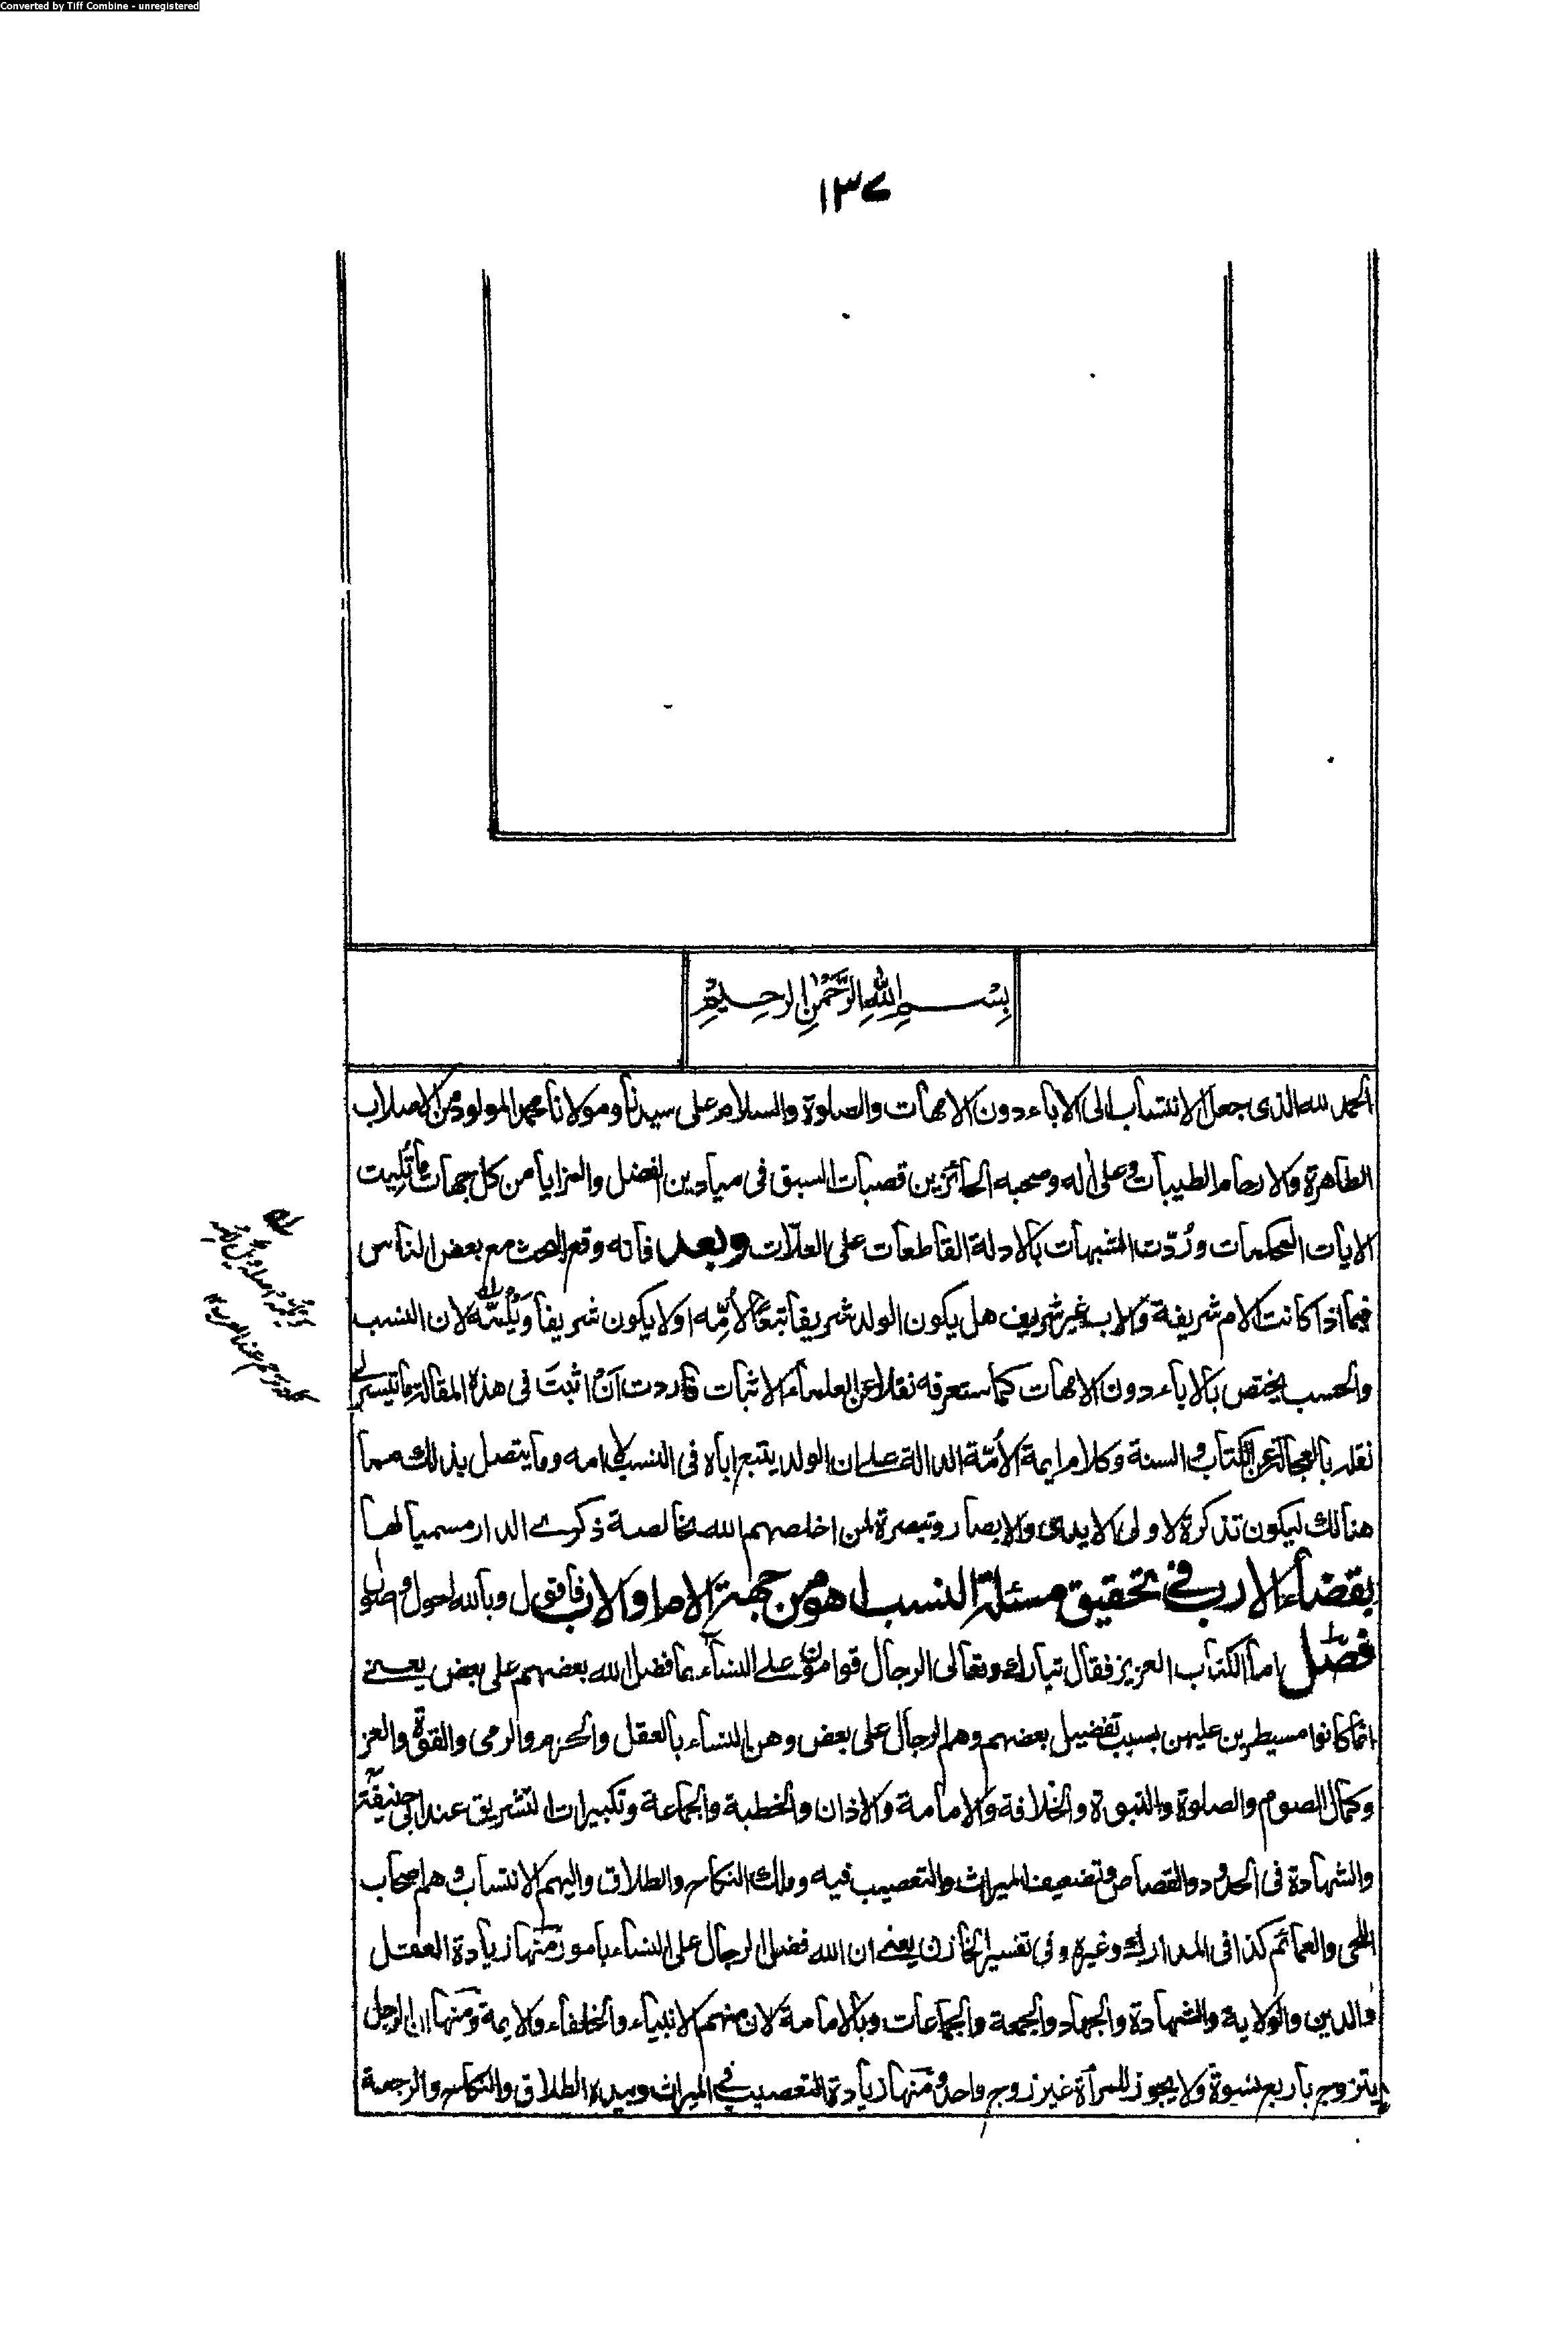 Converted by Tiff Combine - unregistered
١٣٧
بِسْمِ اللهِ الرَّحْمٰنِ الرحِيْمِ
الحمد لله الذى جعل الانتساب الى الاباء دون الامهات والصلوة والسلام على سيدنا ومولانا محمد المولود من الاصلاب
الطاهرة والارحام الطيبات وعلى اله وصحبه الحائزين قصبات السبق فى ميادين الفضل والمزايا من كل جهات ما تُليت
الايات المحكمات ورُدّت المشبهات بالادلة القاطعات على العلّات وبعد فانه وقع البحث مع بعض الناس
فيما اذا كانت الام شريفة والاب غير شريف هل يكون الولد شريفا تبعًا لأمّه او لا يكون شريفا لان النسب
والحسب يختص بالاباء دون الامهات كما ستعرفه نقلا عن العلماء الاثبات فاردت اَنْ اثبتَ فى هذه المقالة ما تيسر لى
نقله بالعجالة عن الكتاب والسنة وكلام ايمة الأمّة الدالة على ان الولد يتبع اباه فى النسب لا امه وما يتصل بذلك مما
هنالك ليكون تذكرة لاولى الايدى والابصار وتبصرة لمن اخلصهم الله بخالصة ذكرى الدار مسميا لها
بقضاء الارب فى تحقيق مسئلة النسب اهو من جهة الام او الاب فاقول وبالله احول واصول
فصل اما الكتاب العزيز فقال تبارك وتعالى الرجال قوامون على النساء بما فضل الله بعضهم على بعض يعنى
انما كانوا مسيطرين عليهن بسبب تفضيل بعضهم وهم الرجال على بعض وهن النساء بالعقل والحزم والرمى والقوّة والعز
وكمال الصوم والصلوة والنبوة والخلافة والامامة والاذان والخطبة والجماعة وتكبيرات التشريق عند ابى حنيفة
والشهادة فى الحدود والقصاص وتضعيف الميراث والتعصيب فيه وملك النكاح والطلاق واليهم الانتساب وهم اصحاب
اللحى والعمائم كذا فى المدارك وغيره وفى تفسير الخازن يعنى ان الله فضل الرجال على النساء بامور منها زيادة العقل
والدين والولاية والشهادة والجهاد والجمعة والجماعات وبالامامة لان منهم الانبياء والخلفاء والايمة ومنها ان الرجل
يتزوج باربع نسوة ولا يجوز للمرأة غير زوج واحد ومنها زيادة التعصيب فى الميراث وبيده الطلاق والنكاح والرجعة